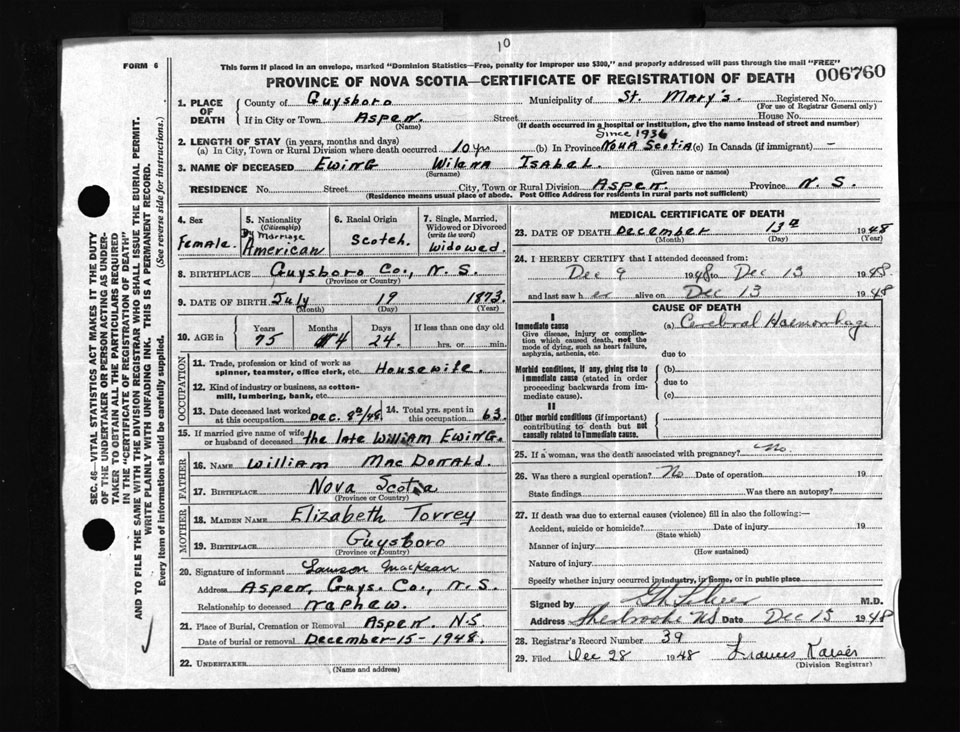 10
FORM 6
This form if placed in an envelope, marked "Dominion Statistics—Free, penalty for improper use $300," and properly addressed will pass through the mail "FREE"
PROVINCE OF NOVA SCOTIA—CERTIFICATE OF REGISTRATION OF DEATH
006760
1. PLACE OF DEATH
County of Guysboro Municipality of St. Mary's. Registered No.
(For use of Registrar General only)
If in City or Town Aspen. Street House No.
(Name) (If death occurred in a hospital or institution, give the name instead of street and number)
Since 1936
2. LENGTH OF STAY (in years, months and days)
(a) In City, Town or Rural Division where death occurred 10 yr (b) In Province Nova Scotia (c) In Canada (if immigrant) -
3. NAME OF DECEASED Ewing Wilena Isabel.
(Surname) (Given name or names)
RESIDENCE No. Street City, Town or Rural Division Aspen. Province N. S.
(Residence means usual place of abode. Post Office Address for residents in rural parts not sufficient)
4. Sex
Female.
5. Nationality
(Citizenship)
By Marriage
American
6. Racial Origin
Scotch.
7. Single, Married, Widowed or Divorced
(write the word)
Widowed.
8. BIRTHPLACE Guysboro Co., N. S.
(Province or Country)
9. DATE OF BIRTH July 19 1873.
(Month) (Day) (Year)
10. AGE in
Years Months Days If less than one day old
75 4 24. hrs. or min.
OCCUPATION
11. Trade, profession or kind of work as spinner, teamster, office clerk, etc. Housewife.
12. Kind of industry or business, as cotton-mill, lumbering, bank, etc.
13. Date deceased last worked at this occupation Dec. 8th/48. 14. Total yrs. spent in this occupation 63.
15. If married give name of wife or husband of deceased the late William Ewing.
FATHER
16. NAME William MacDonald.
17. BIRTHPLACE Nova Scotia
(Province or Country)
MOTHER
18. MAIDEN NAME Elizabeth Torrey
19. BIRTHPLACE Guysboro
(Province or Country)
20. Signature of informant Lawson MacKeen
Address Aspen, Guys. Co., N. S.
Relationship to deceased naphew.
21. Place of Burial, Cremation or Removal Aspen. N-S
Date of burial or removal December-15-1948.
22. UNDERTAKER
(Name and address)
MEDICAL CERTIFICATE OF DEATH
23. DATE OF DEATH December 13th 1948
(Month) (Day) (Year)
24. I HEREBY CERTIFY that I attended deceased from:
Dec 9 1948 to Dec 13 1948.
and last saw her alive on Dec 13 1948
CAUSE OF DEATH
I
Immediate cause
Give disease, injury or complication which caused death, not the mode of dying, such as heart failure, asphyxia, asthenia, etc.
(a) Cerebral Haemorrhage
due to
Morbid conditions, if any, giving rise to immediate cause (stated in order proceeding backwards from immediate cause).
(b)
due to
(c)
II
Other morbid conditions (if important) contributing to death but not causally related to immediate cause.
25. If a woman, was the death associated with pregnancy? no.
26. Was there a surgical operation? No Date of operation 19
State findings Was there an autopsy?
27. If death was due to external causes (violence) fill in also the following:—
Accident, suicide or homicide? Date of injury 19
(State which)
Manner of injury
(How sustained)
Nature of injury
Specify whether injury occurred in industry, in home, or in public place
Signed by M.D.
Address Sherbrooke NS Date Dec 13 1948
28. Registrar's Record Number 39
29. Filed Dec 28 1948 Frances Kaiser
(Division Registrar)
SEC. 46—VITAL STATISTICS ACT MAKES IT THE DUTY
OF THE UNDERTAKER OR PERSON ACTING AS UNDER-
TAKER TO OBTAIN ALL THE PARTICULARS REQUIRED
IN THE "CERTIFICATE OF REGISTRATION OF DEATH"
AND TO FILE THE SAME WITH THE DIVISION REGISTRAR WHO SHALL ISSUE THE BURIAL PERMIT.
WRITE PLAINLY WITH UNFADING INK. THIS IS A PERMANENT RECORD.
Every item of information should be carefully supplied. (See reverse side for instructions.)